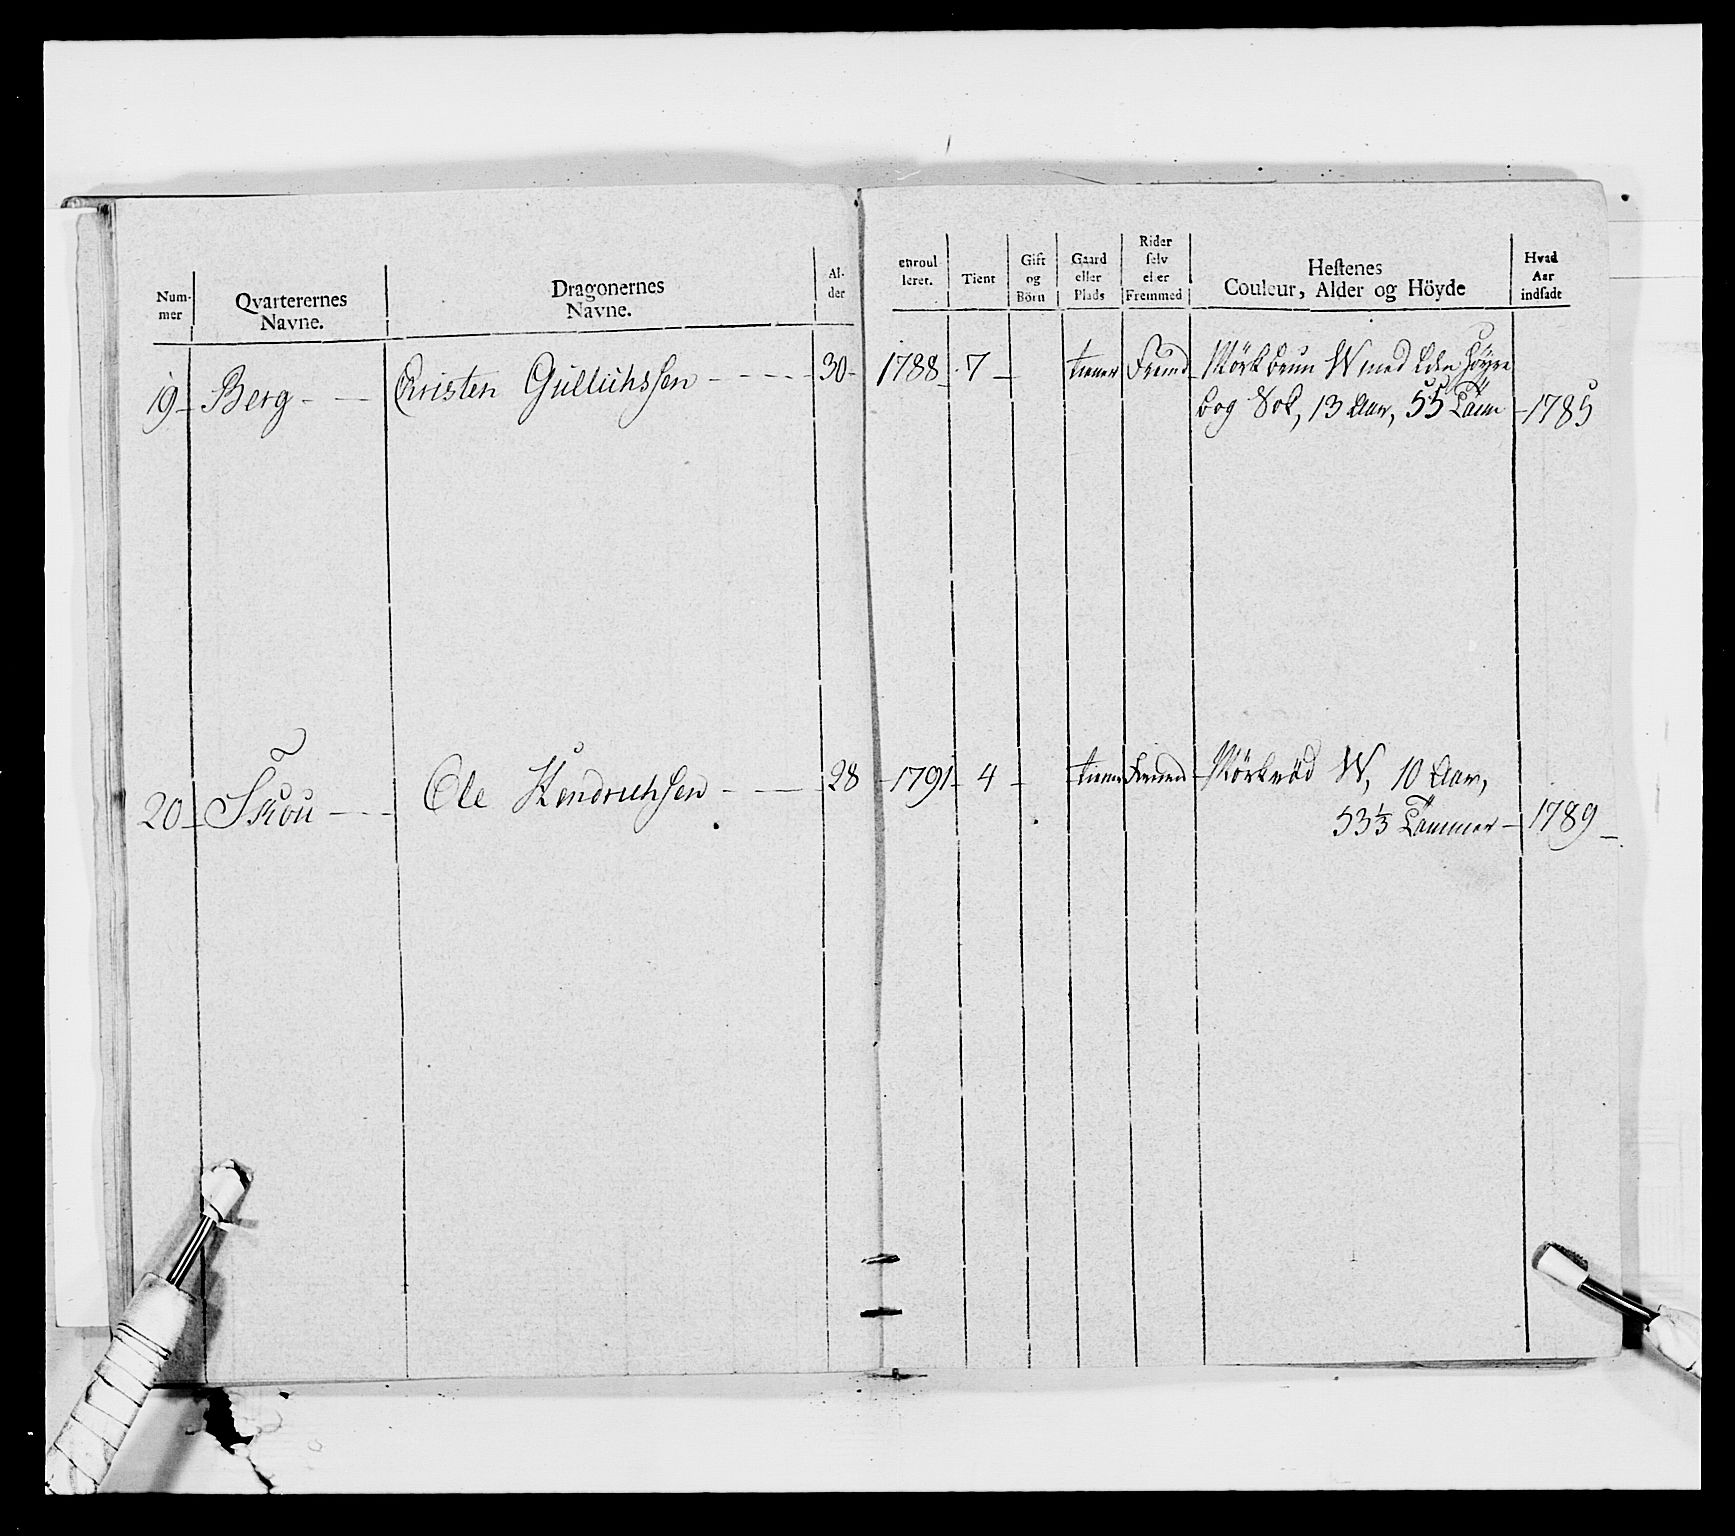 Num-
mer
Qvarterernes
Navne.
Dragonernes
Navne.
Al-
der
enroul
leret.
Tient
Gift
og
Börn
Gaard
eller
Plads
Rider
selv
eller
Fremmed
Hestenes
Couleur, Alder og Höyde
Hvad
Aar
indsadt
19 Berg Christen Gullichssen 30 1788 7 tiener Fremd Mörkbrun W med liden höyre
bog Sol, 13 Aar, 55 Tom 1785
20 Skou Ole Hendrichsen 28 1791 4 tiener Fremd Mörkröd W, 10 Aar,
53⅓ Tommer 1789